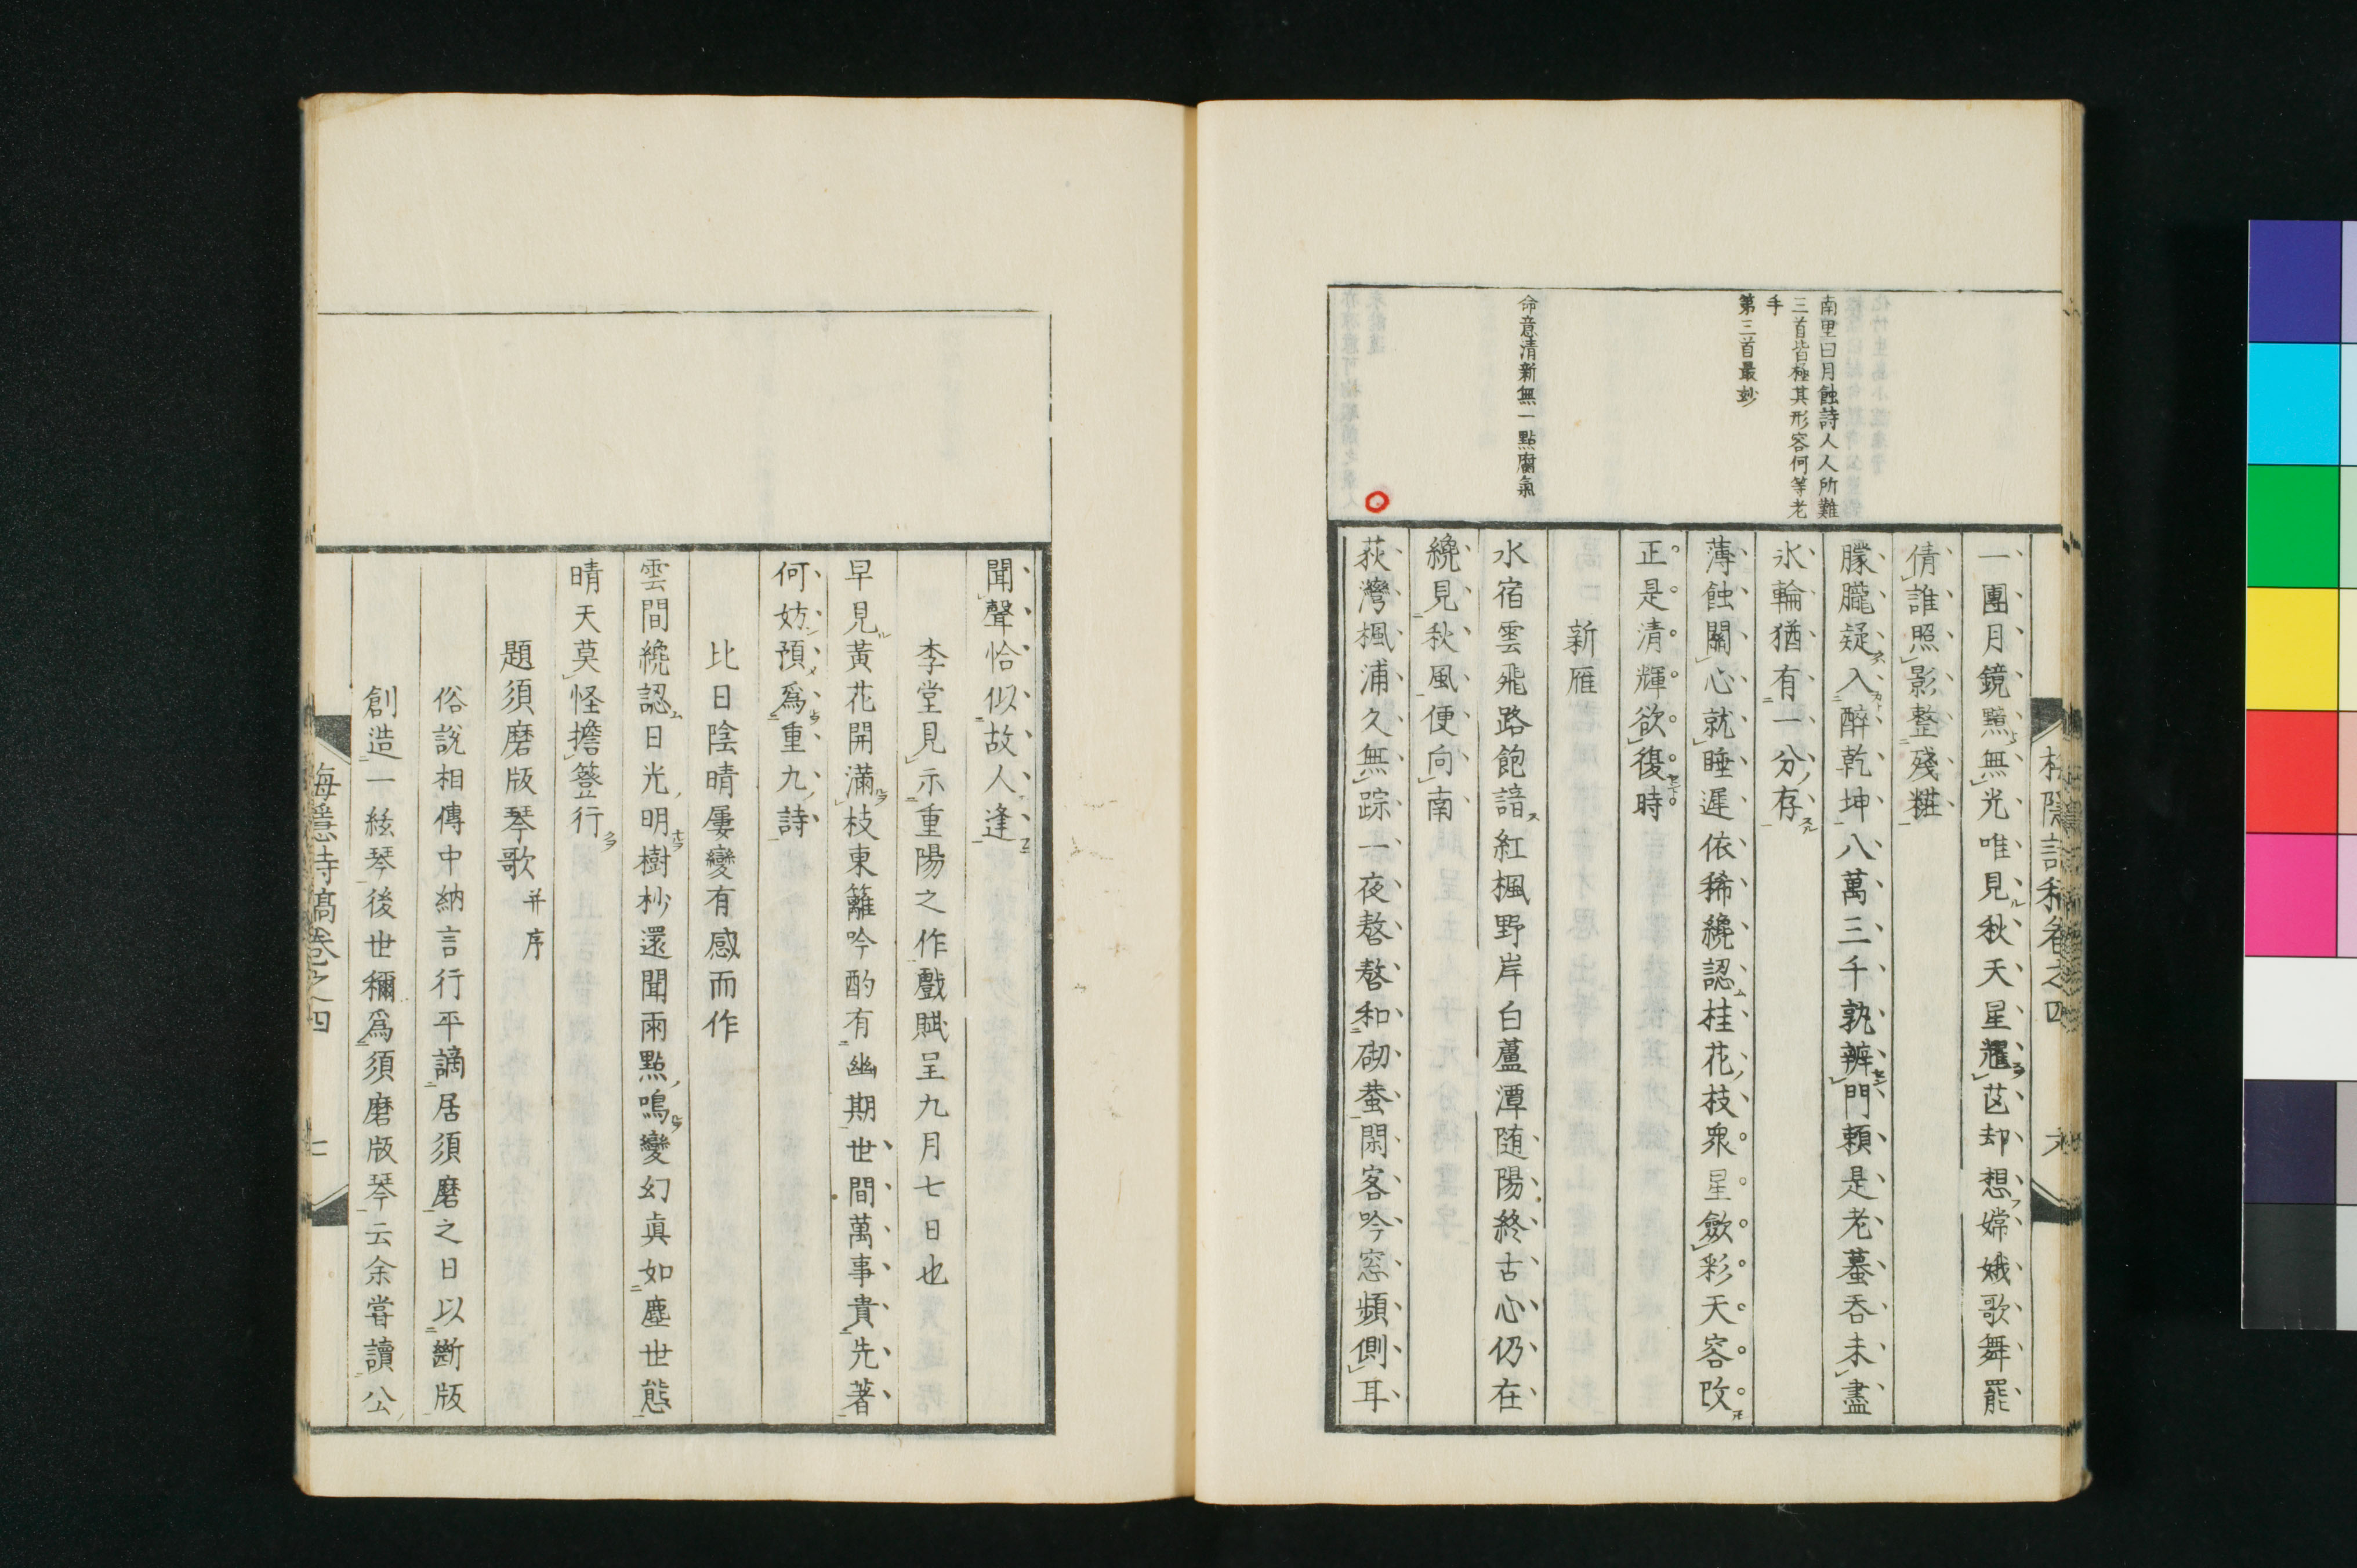 南里曰月蝕詩人人所難
三首皆極其形容何等老
手
第三首最妙
命意清新無一點腐氣
一團月鏡黯無光唯見秋天星耀芒却想嫦娥歌舞罷
倩誰照影整殘粧
朦朧疑入醉乾坤八萬三千孰辨門賴是老蟇吞未盡
氷輪猶有一分存
薄蝕關心就睡遲依稀纔認桂花枝衆星斂彩天容改
正是清輝欲復時
新雁
水宿雲飛路飽諳紅楓野岸白蘆潭随陽終古心仍在
纔見秋風便向南
荻灣楓浦久無踪一夜嗸嗸和砌蛬閑客吟窓頻側耳
聞聲恰似故人逢
李堂見示重陽之作戲賦呈九月七日也
早見黃花開滿枝東籬吟酌有幽期世間萬事貴先著
何妨預爲重九詩
比日陰晴屢變有感而作
雲間纔認日光明樹杪還聞雨點鳴變幻眞如塵世態
晴天莫怪擔簦行
題須磨版琴歌 并序
俗說相傳中納言行平謫居須磨之日以斷版
創造一絃琴後世稱爲須磨版琴云余甞讀公
梅隱詩稿卷之四 七